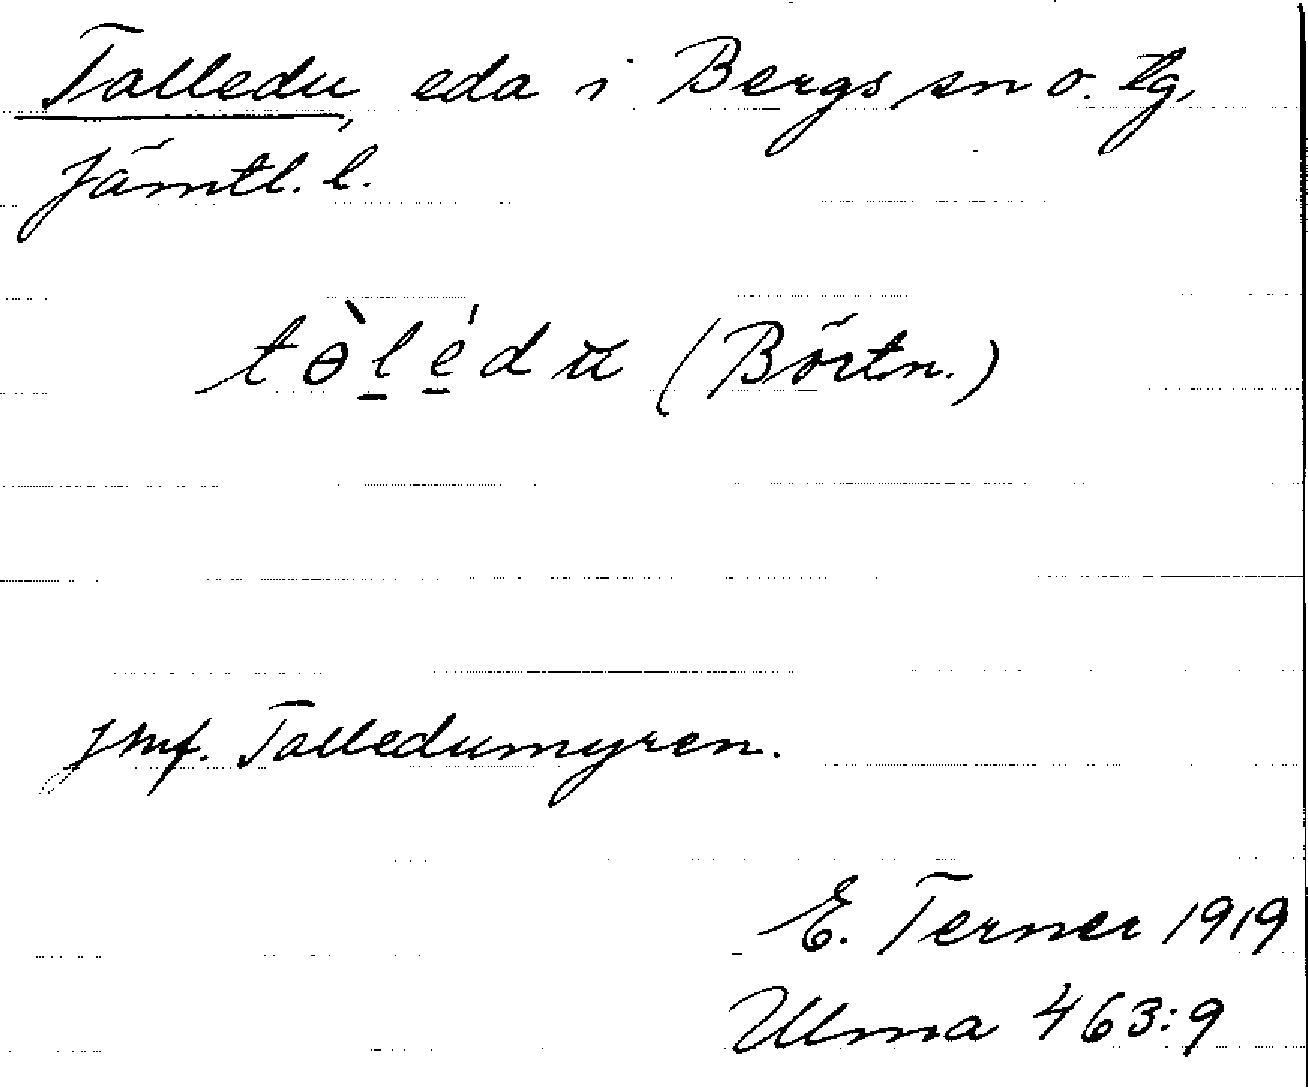 Talledu, eda i Bergs sn o. tg,
Jämtl. l.
tɵ̀lédu (Börtn.)
jmf. Talledumyren.
E. Terner 1919
Ulma 463:9